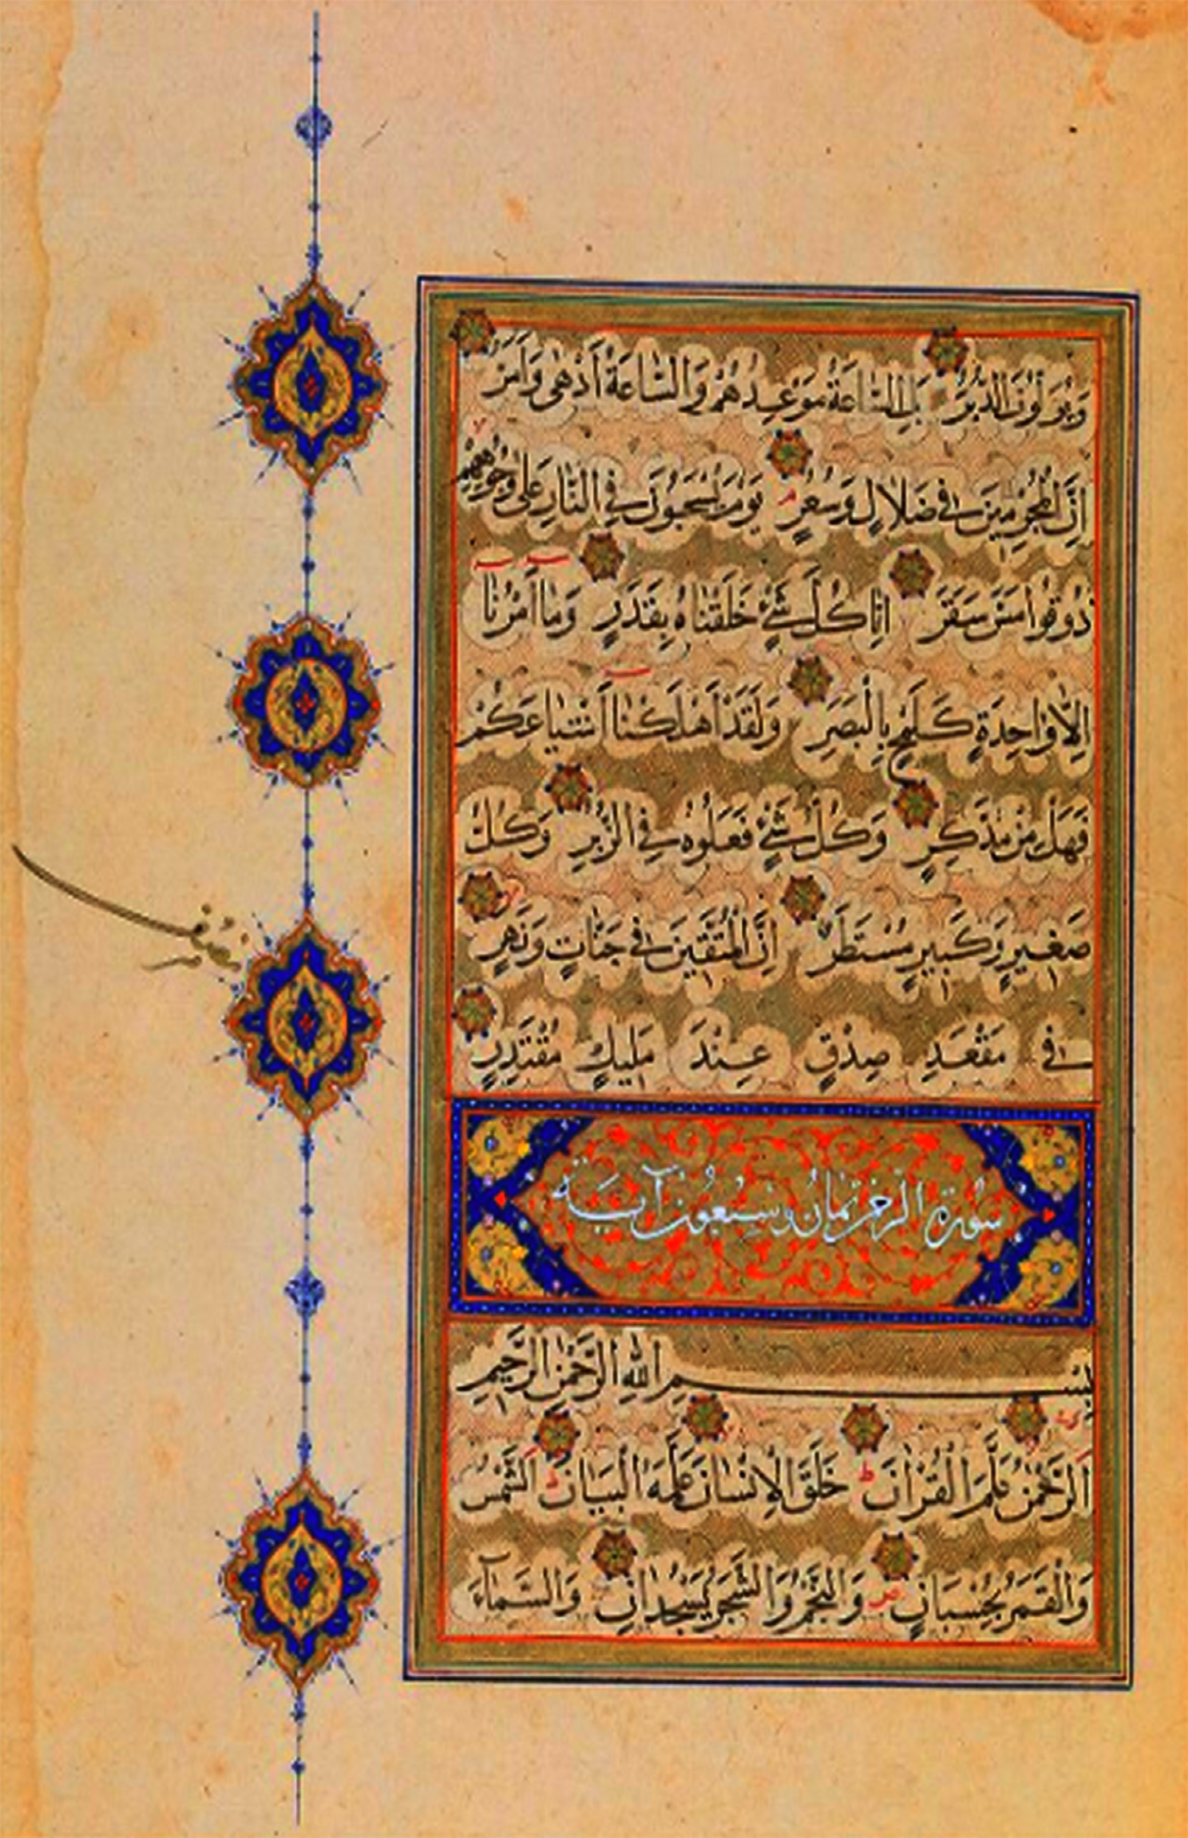 وَيُوَلُّونَ الدُّبُرَ بَلِ السَّاعَةُ مَوْعِدُهُمْ وَالسَّاعَةُ أَدْهٰى وَأَمَرُّ
اِنَّ الْمُجْرِمِينَ فِي ضَلَالٍ وَسُعُرٍ يَوْمَ يُسْحَبُونَ فِي النَّارِ عَلٰى وُجُوهِهِمْ
ذُوقُوا مَسَّ سَقَرَ اِنَّا كُلَّ شَيْءٍ خَلَقْنَاهُ بِقَدَرٍ وَمَا أَمْرُنَا
اِلَّا وَاحِدَةٌ كَلَمْحٍ بِالْبَصَرِ وَلَقَدْ أَهْلَكْنَا أَشْيَاعَكُمْ
فَهَلْ مِنْ مُدَّكِرٍ وَكُلُّ شَيْءٍ فَعَلُوهُ فِي الزُّبُرِ وَكُلُّ
صَغِيرٍ وَكَبِيرٍ مُسْتَطَرٌ اِنَّ الْمُتَّقِينَ فِي جَنَّاتٍ وَنَهَرٍ
فِي مَقْعَدِ صِدْقٍ عِنْدَ مَلِيكٍ مُقْتَدِرٍ
سُورَةُ الرَّحْمٰنِ ثَمَانٌ وَسَبْعُونَ آيَةً
بِسْمِ اللّٰهِ الرَّحْمٰنِ الرَّحِيمِ
اَلرَّحْمٰنُ عَلَّمَ الْقُرْاٰنَ خَلَقَ الْاِنْسَانَ عَلَّمَهُ الْبَيَانَ اَلشَّمْسُ
وَالْقَمَرُ بِحُسْبَانٍ وَالنَّجْمُ وَالشَّجَرُ يَسْجُدَانِ وَالسَّمَآءَ